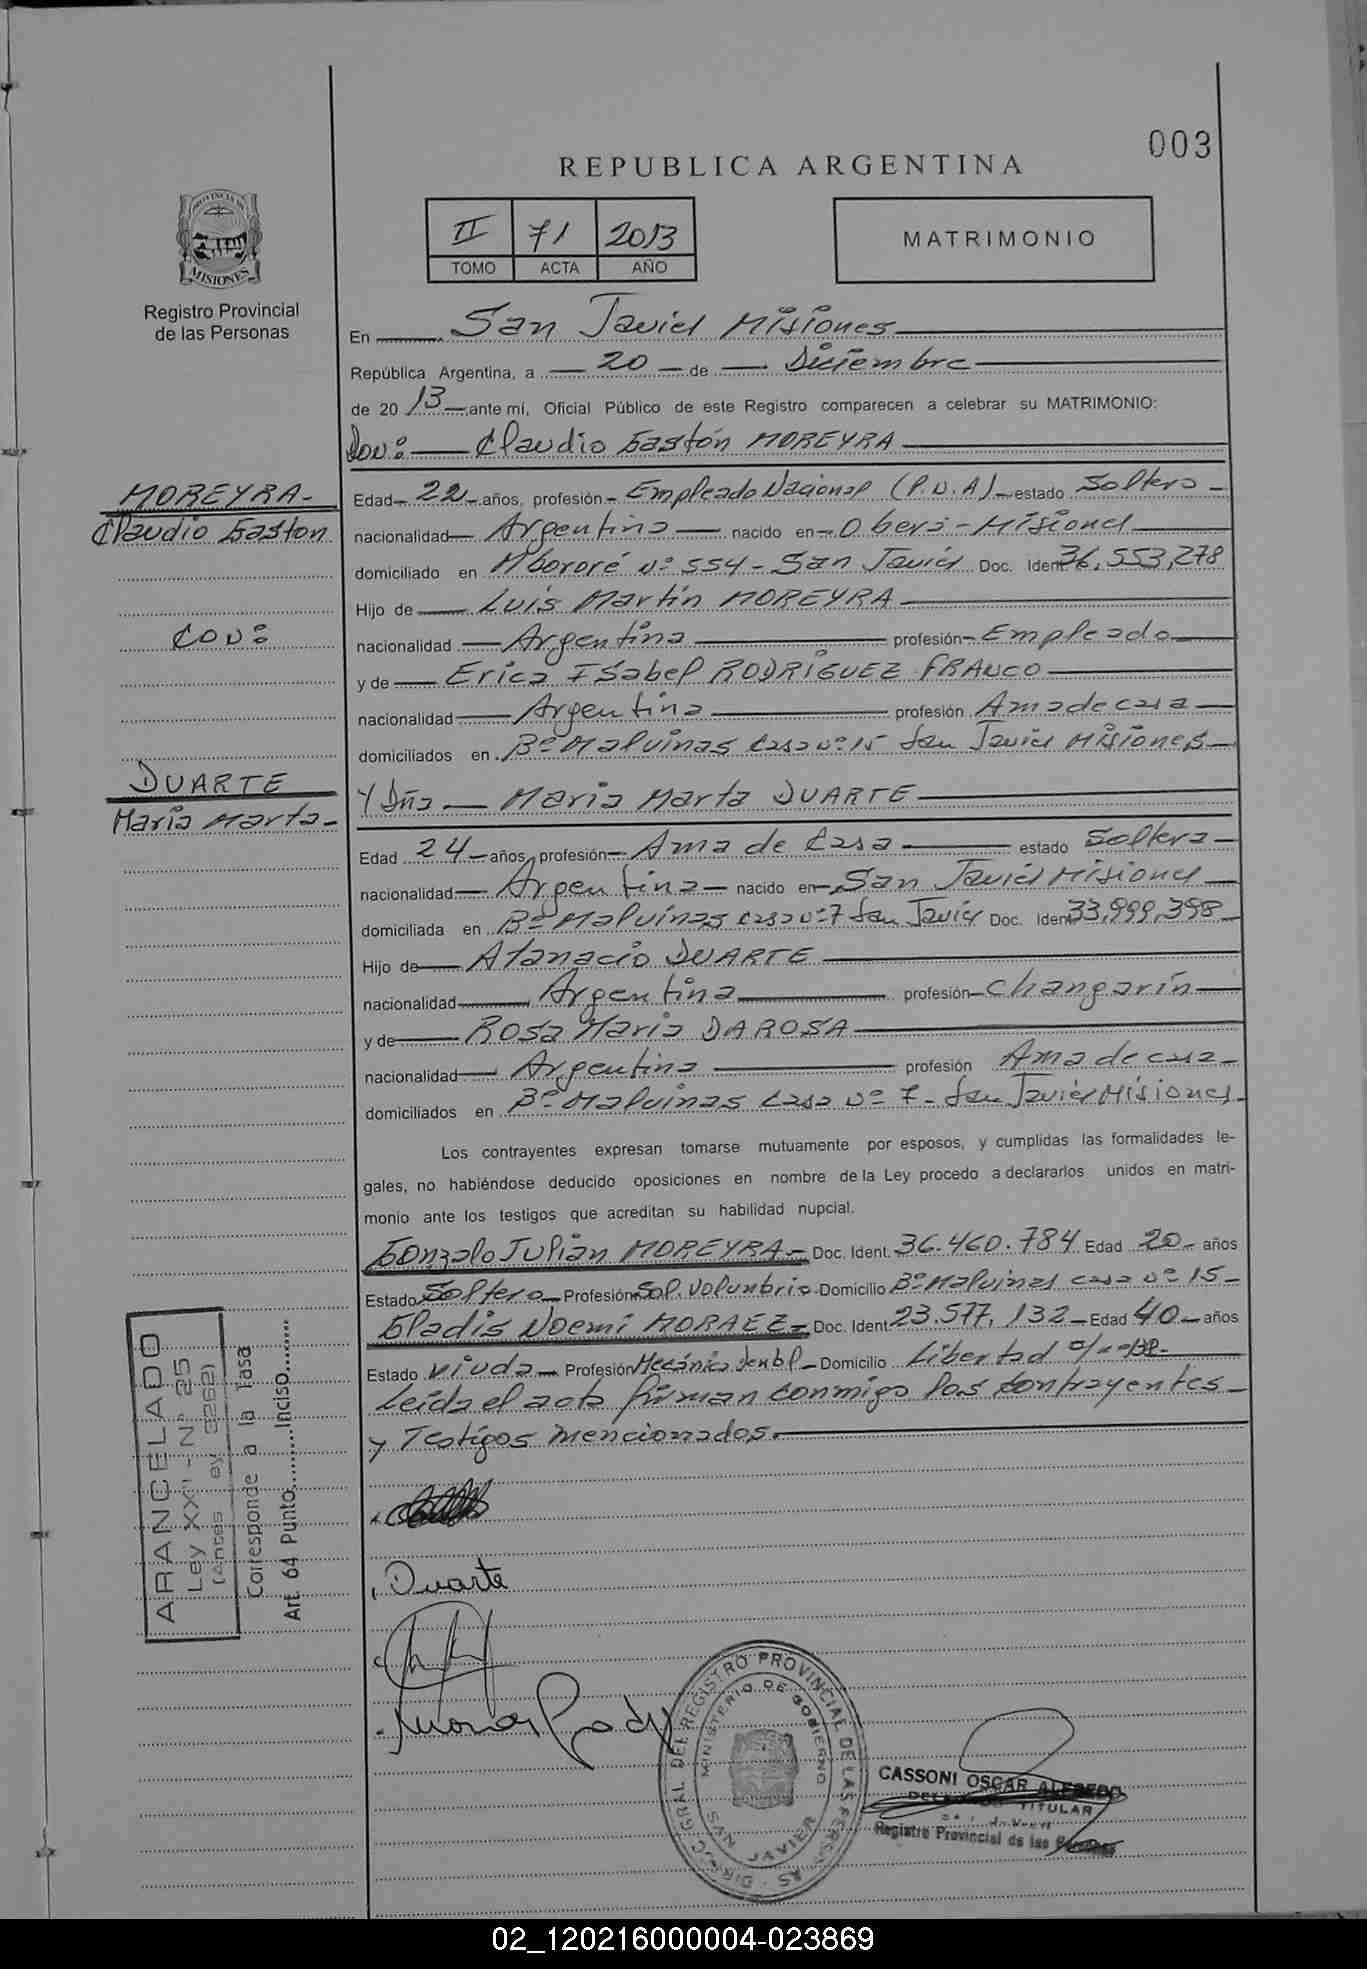 003
REPUBLICA ARGENTINA
II 71 2013
TOMO ACTA AÑO
MATRIMONIO
PROVINCIA DE
MISIONES
Registro Provincial
de las Personas
En San Javier Misiones
República Argentina, a 20 de Diciembre
de 20 13 ante mí, Oficial Público de este Registro comparecen a celebrar su MATRIMONIO:
Don: Claudio Gastón MOREYRA
MOREYRA-
Claudio Gaston
CON:
DUARTE
Maria Marta-
Edad 22 años, profesión Empleado Nacional (P.N.A) estado Soltero
nacionalidad Argentina nacido en Oberá-Misiones
domiciliado en Mbororé Nº 554 - San Javier Doc. Ident 36,553,278
Hijo de Luis Martín MOREYRA
nacionalidad Argentina profesión Empleado
y de Erica Isabel RODRIGUEZ FRANCO
nacionalidad Argentina profesión Ama de casa
domiciliados en Bº Malvinas casa nº 15 San Javier Misiones
Y Dña Maria Marta DUARTE
Edad 24 años, profesión Ama de Casa estado Soltera
nacionalidad Argentina nacido en San Javier Misiones
domiciliada en Bº Malvinas casa nº 7 San Javier Doc. Ident 33,999,398
Hijo de Atanacio DUARTE
nacionalidad Argentina profesión Changarín
y de Rosa Maria DAROSA
nacionalidad Argentina profesión Ama de casa
domiciliados en Bº Malvinas casa nº 7 - San Javier Misiones
Los contrayentes expresan tomarse mutuamente por esposos, y cumplidas las formalidades le-
gales, no habiéndose deducido oposiciones en nombre de la Ley procedo a declararlos unidos en matri-
monio ante los testigos que acreditan su habilidad nupcial.
Gonzalo Julián MOREYRA Doc. Ident. 36.460.784 Edad 20 años
Estado Soltero Profesión Sol. Voluntario Domicilio Bº Malvinas casa nº 15
Gladis Noemí MORAEZ Doc. Ident 23.577,132 Edad 40 años
Estado Viuda Profesión Mecánica dental Domicilio Libertad
Leída el acta firman conmigo los contrayentes
y Testigos mencionados.
ARANCELADO
Ley XXII - Nº 25
(Antes ey 3262)
Corresponde a la Tasa
Art. 64 Punto Inciso
Duarte
DIR. GRAL. DEL REGISTRO PROVINCIAL DE LAS PERSONAS
MINISTERIO DE GOBIERNO
SAN JAVIER
CASSONI OSCAR ALFREDO
TITULAR
Registro Provincial de las Personas
02_120216000004-023869